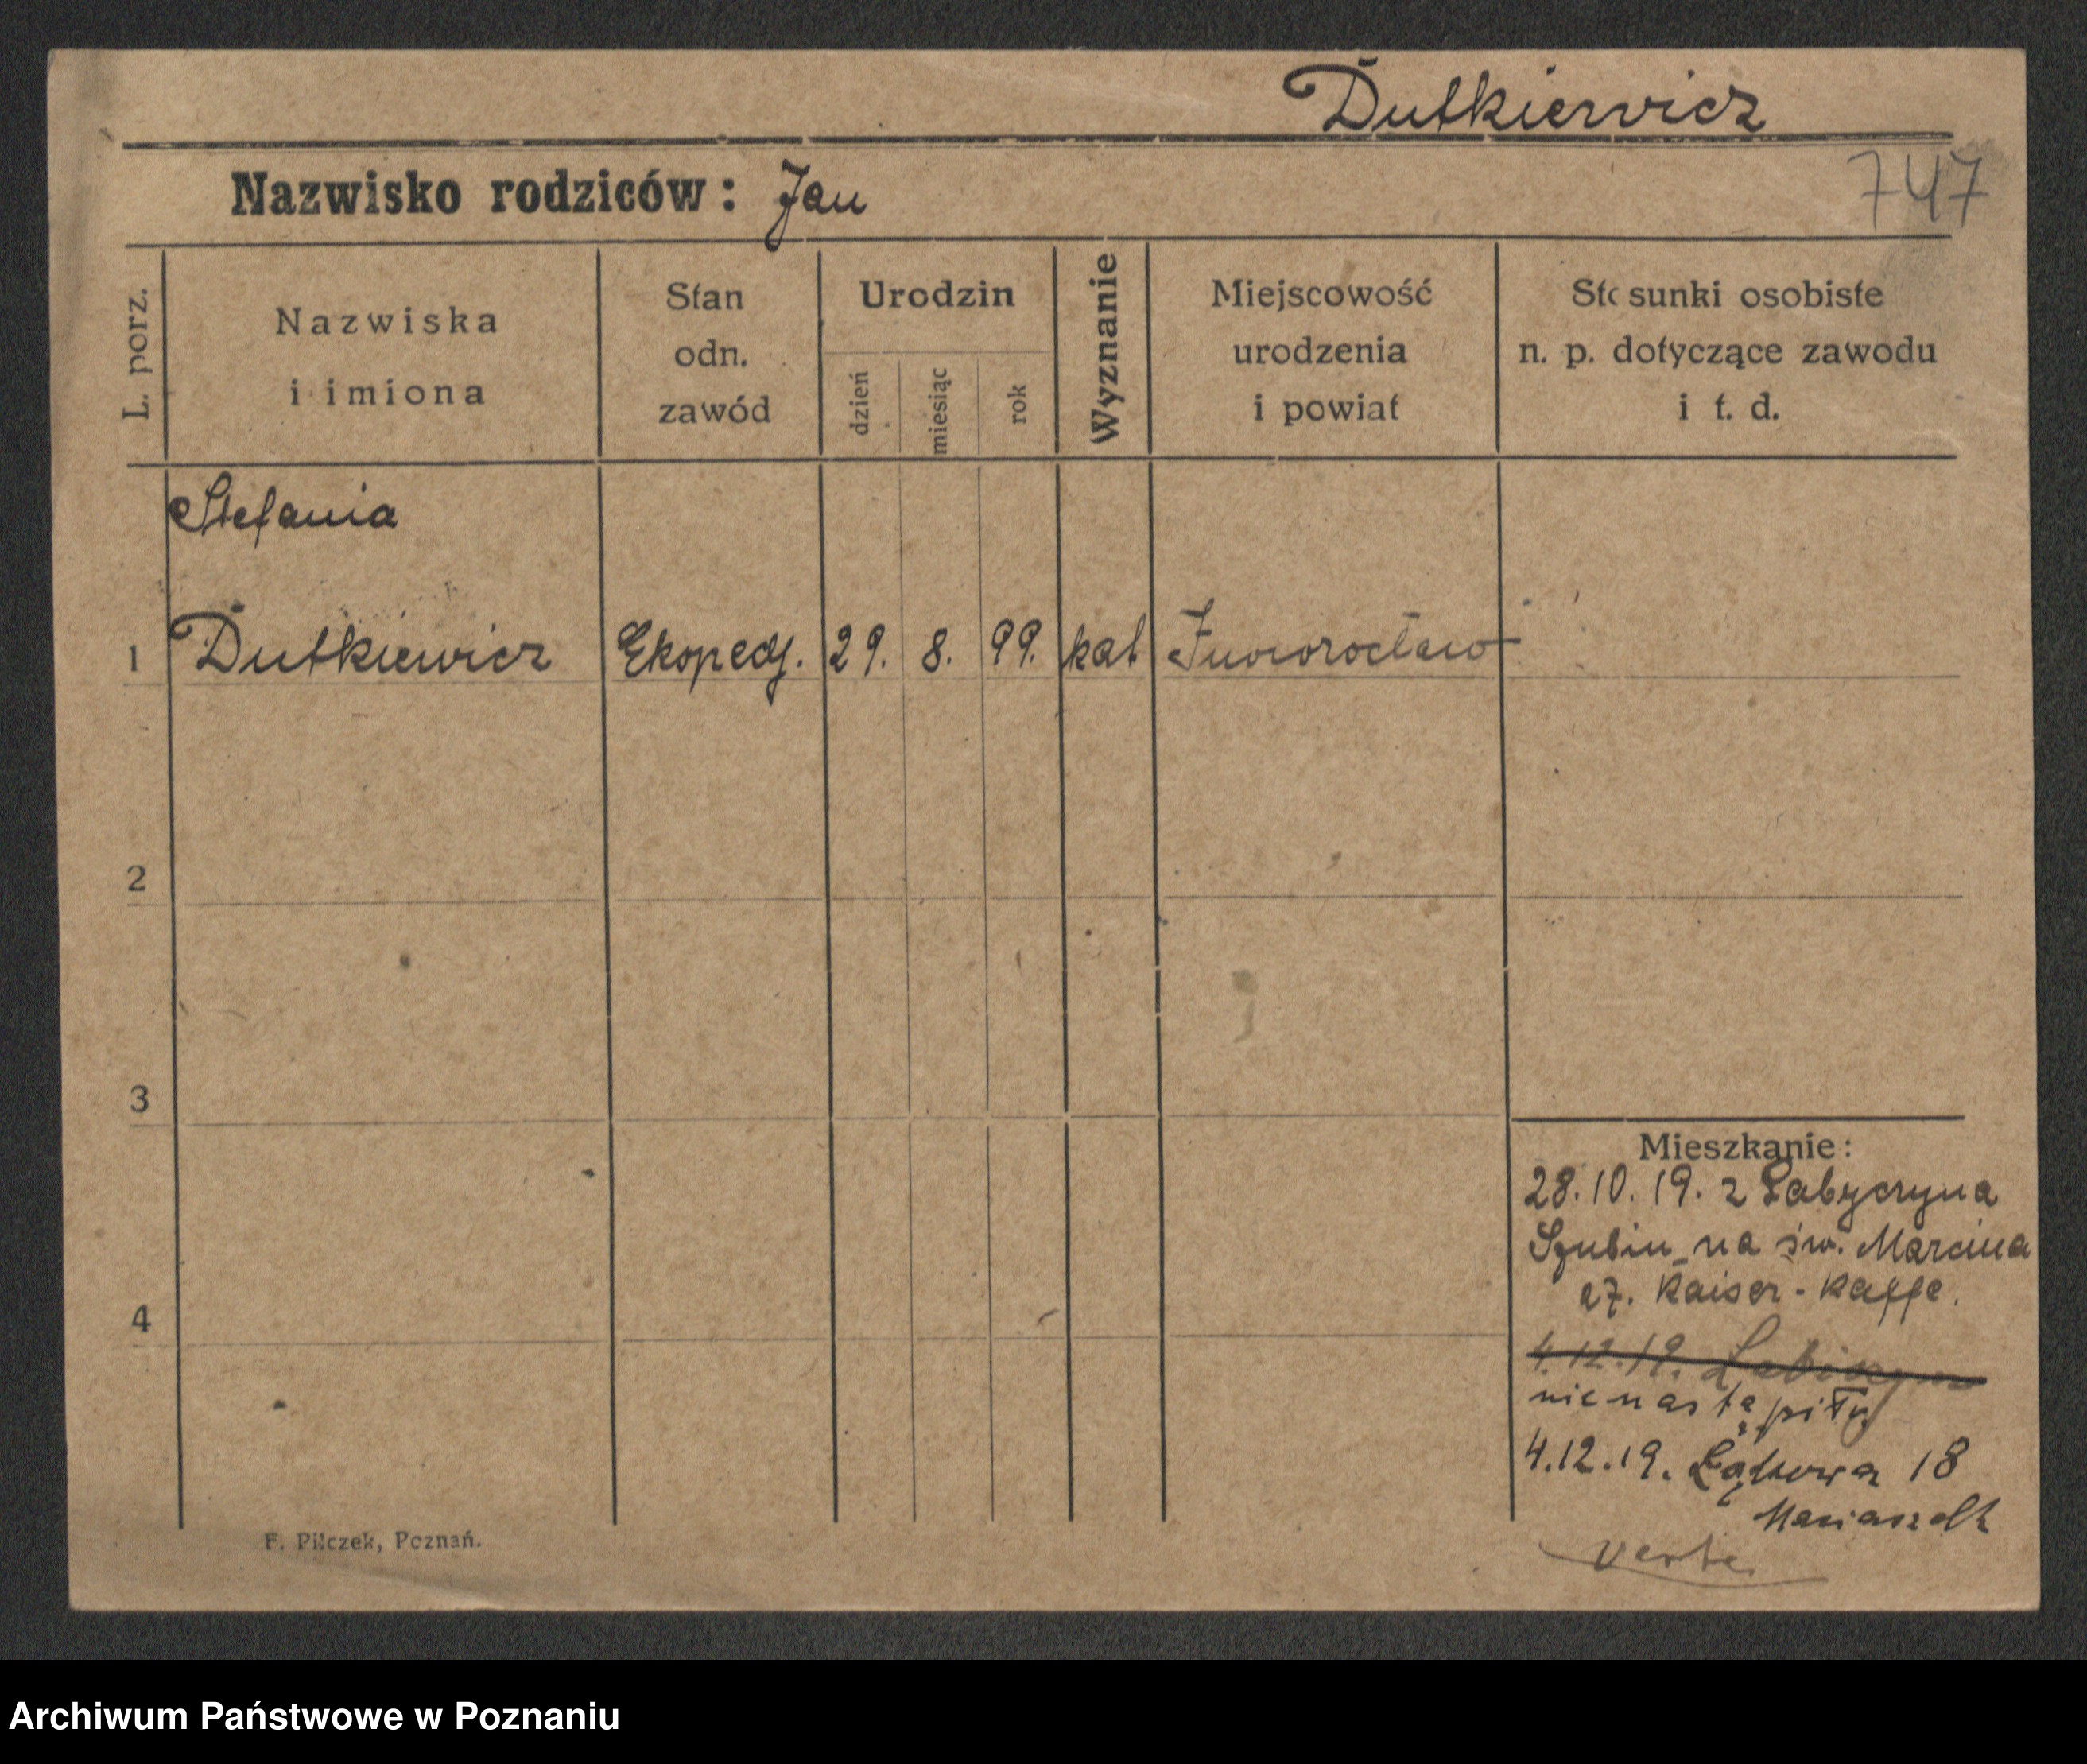 Dutkiewicz
Nazwisko rodziców: Jan
747
L. porz.
Nazwiska
i imiona
Stan
odn.
zawód
Urodzin
dzień
miesiąc
rok
Wyznanie
Miejscowość
urodzenia
i powiat
Stosunki osobiste
n. p. dotyczące zawodu
i t. d.
Stefania
1 Dutkiewicz Ekspedj. 29. 8. 99. kat Inowrocław
2
3
4
Mieszkanie:
28.10.19. z Łabyszyna
Szubin na św. Marcina
27. Kaiser-Kaffe.
4.12.19.
nie nastąpiły
4.12.19. Łąkowa 18
verte
F. Pilczek, Poznań.
Archiwum Państwowe w Poznaniu